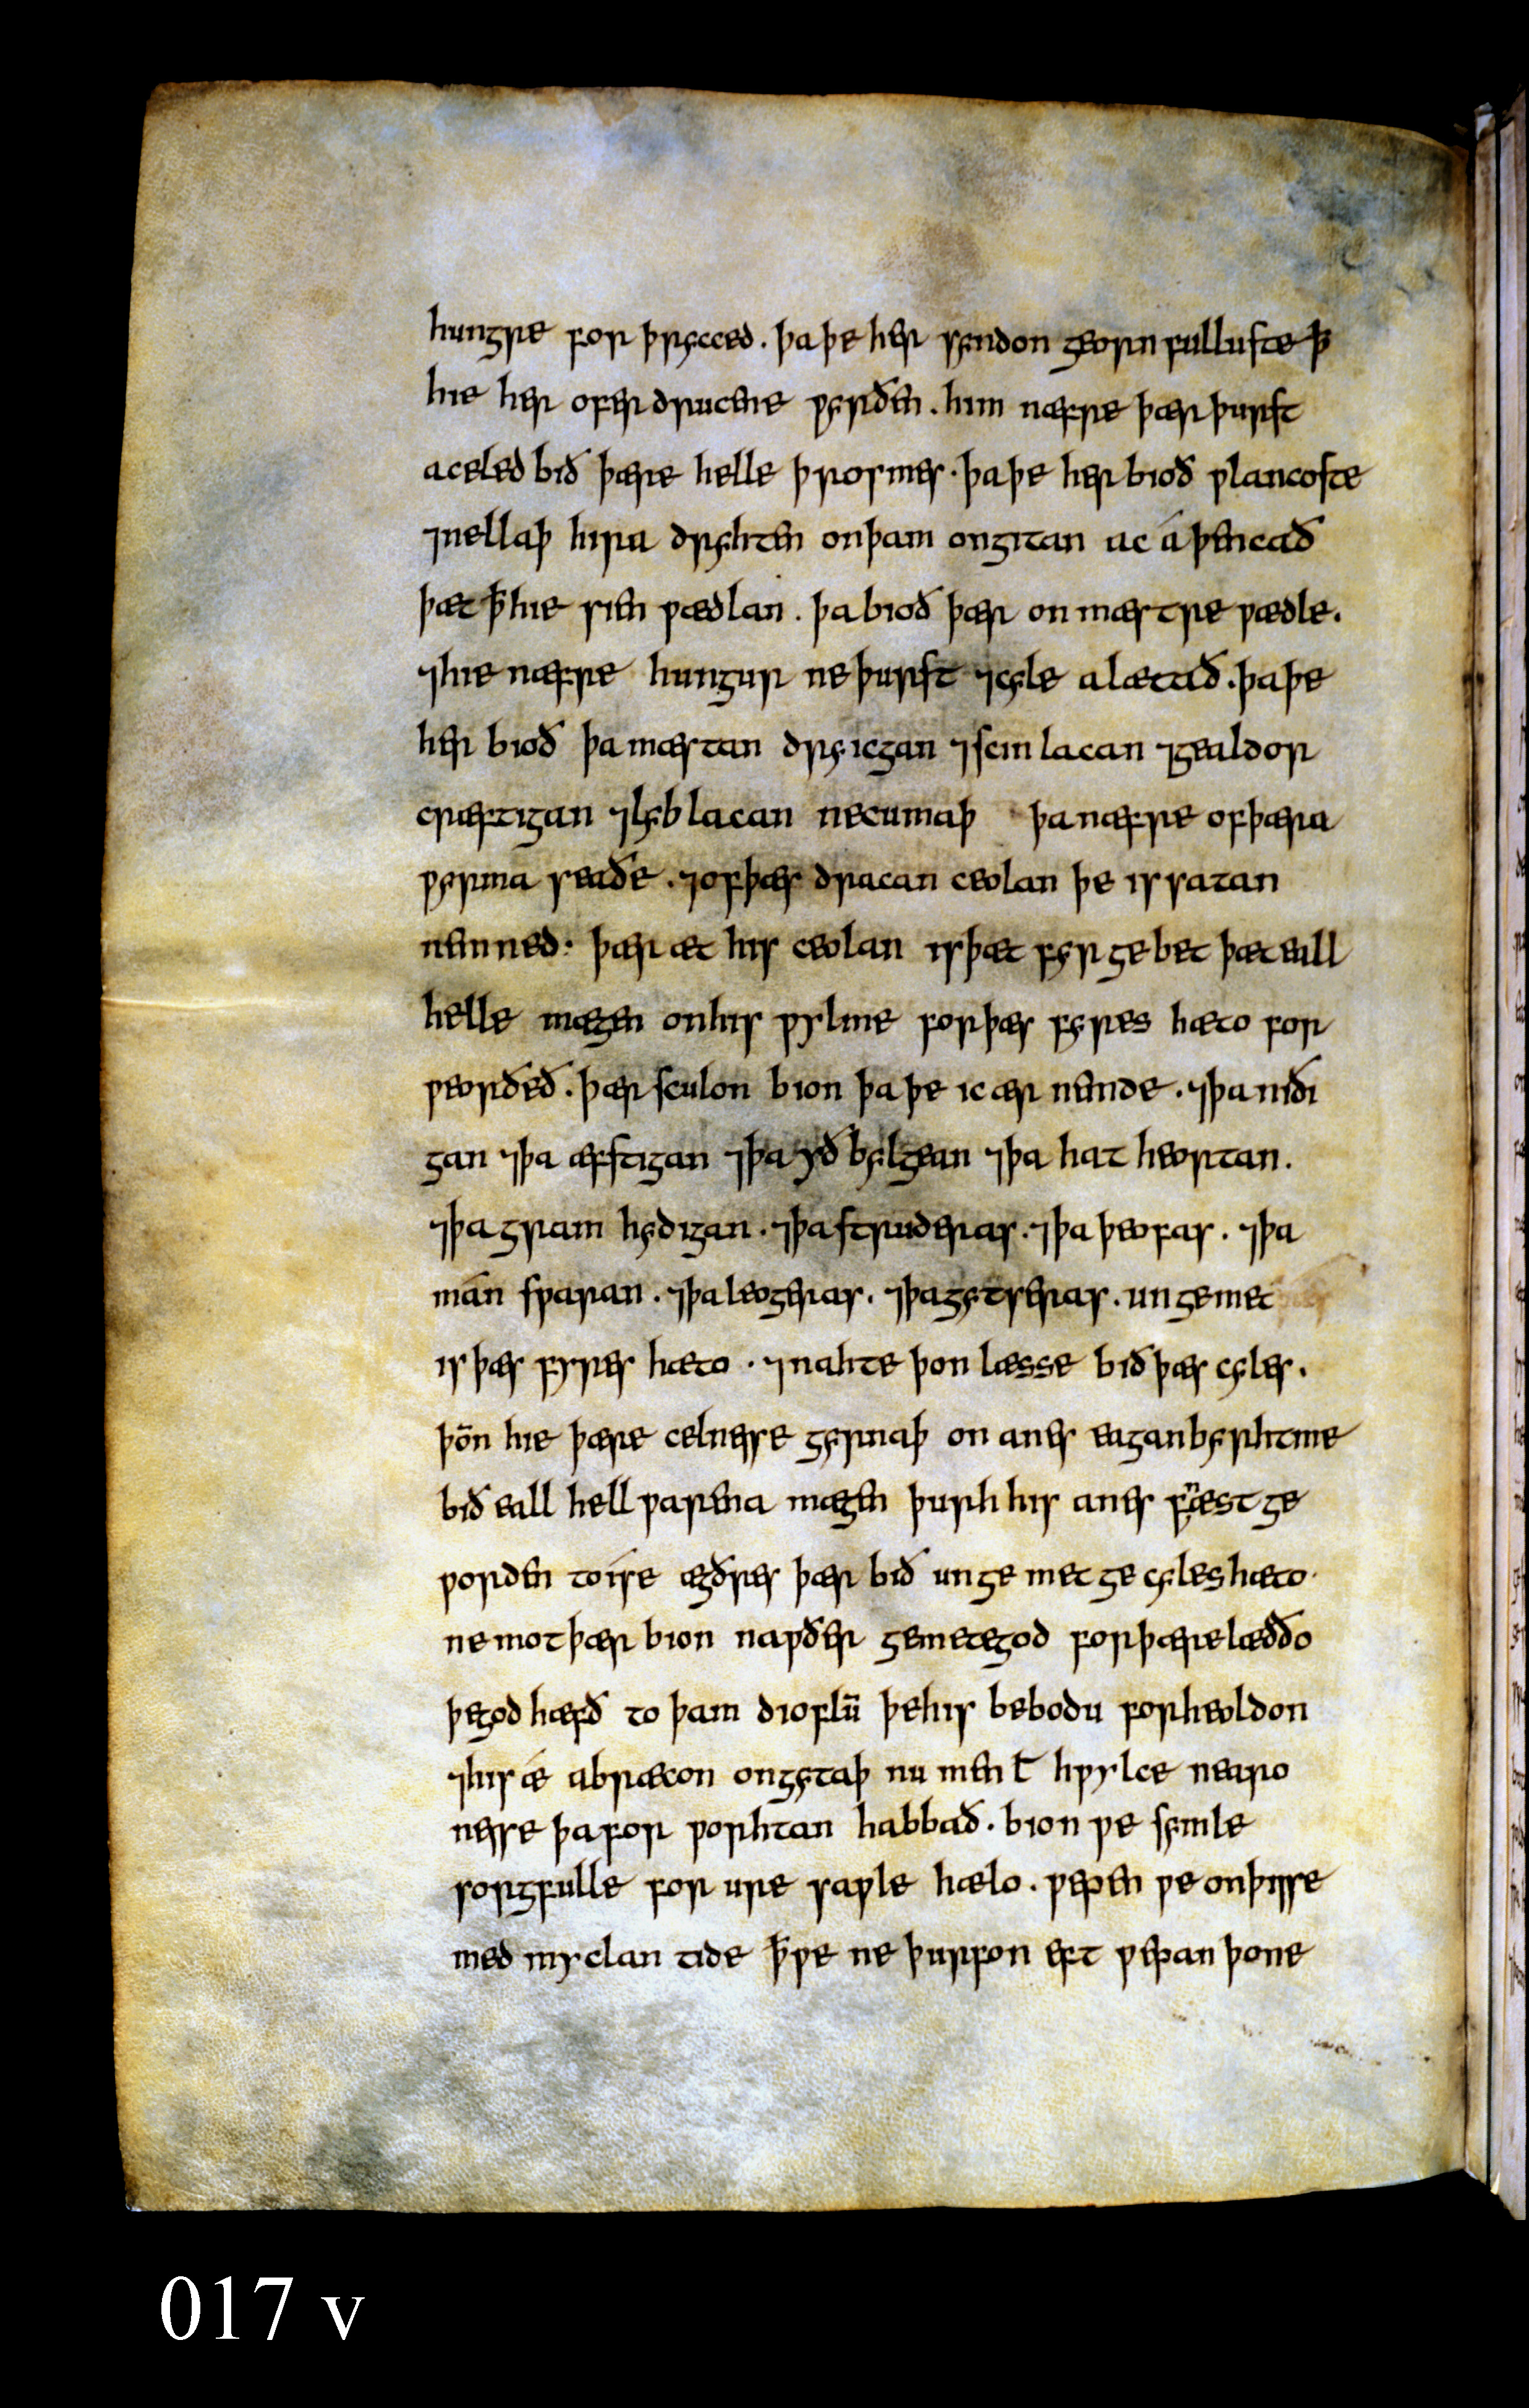 hungre for þrycced . þa þe her syndon georn fullufte ꝥ
hie her ofer druncene ƿyrðen . him næfre þær þurst
aceled bið þære helle þrosmes . þa þe her bioð ƿlancoste
⁊ nellaþ hira dryhten on þam ongitan ac áþencað
þæt ꝥ hie sien ƿædlan . þa bioð þær on mæstre ƿædle .
⁊ hie næfre hungur ne þurst ⁊ cyle alætað . þa þe
her bioð þa mæstan dryicgan ⁊ scinlacan ⁊ gealdor
cræftigan ⁊ lyblacan ne cumaþ þa næfre of þæra
ƿyrma seaðe . ⁊ of þæs dracan ceolan þe is satan
nenned . þær æt his ceolan is þæt fyr gebet þæt eall
helle mægen on his ƿylme for þæs fyres hæto for
ƿeorðeð . þær sculon bion þa þe ic ær nemde . ⁊ þa niði
gan ⁊ þa æfstigan ⁊ þa yðbylgean ⁊ þa hatheortan .
⁊ þa gramhydigan . ⁊ þa struderas . ⁊ þa þeofas . ⁊ þa
mánsƿaran . ⁊ þa leogeras . ⁊ þa gytseras . ungemet
is þæs fyres hæto . ⁊ nahte þon læsse bið þæs cyles .
þoñ hie þære celnesse gyrnaþ on anes eagan byrhtme
bið eall hell ƿarena mægen þurh his anes fæst ge
ƿorden to íse ægðres þær bið ungemet ge cyles hæto .
ne mot þær bion naƿðer gemetegod for þære læððo
þe god hæfð to þam dioflū þe his bebodu forheoldon
⁊ his ǽ abræcon ongytaþ nu men ꞇ hƿylce nearo
nesse þa forƿorhtan habbað . bion ƿe symle
sorgfulle for ure saƿle hælo . ƿepen ƿe on þisse
medmyclan tide ꝥ ƿe ne þurfon eft ƿepan þone
017 v